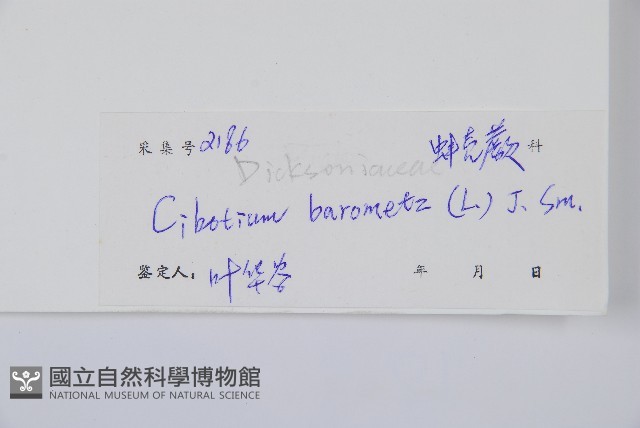 采集号 2186 蚌壳蕨 科
Dicksoniaceae
Cibotium barometz (L.) J. Sm.
鉴定人: 叶华谷 年 月 日
國立自然科學博物館
NATIONAL MUSEUM OF NATURAL SCIENCE